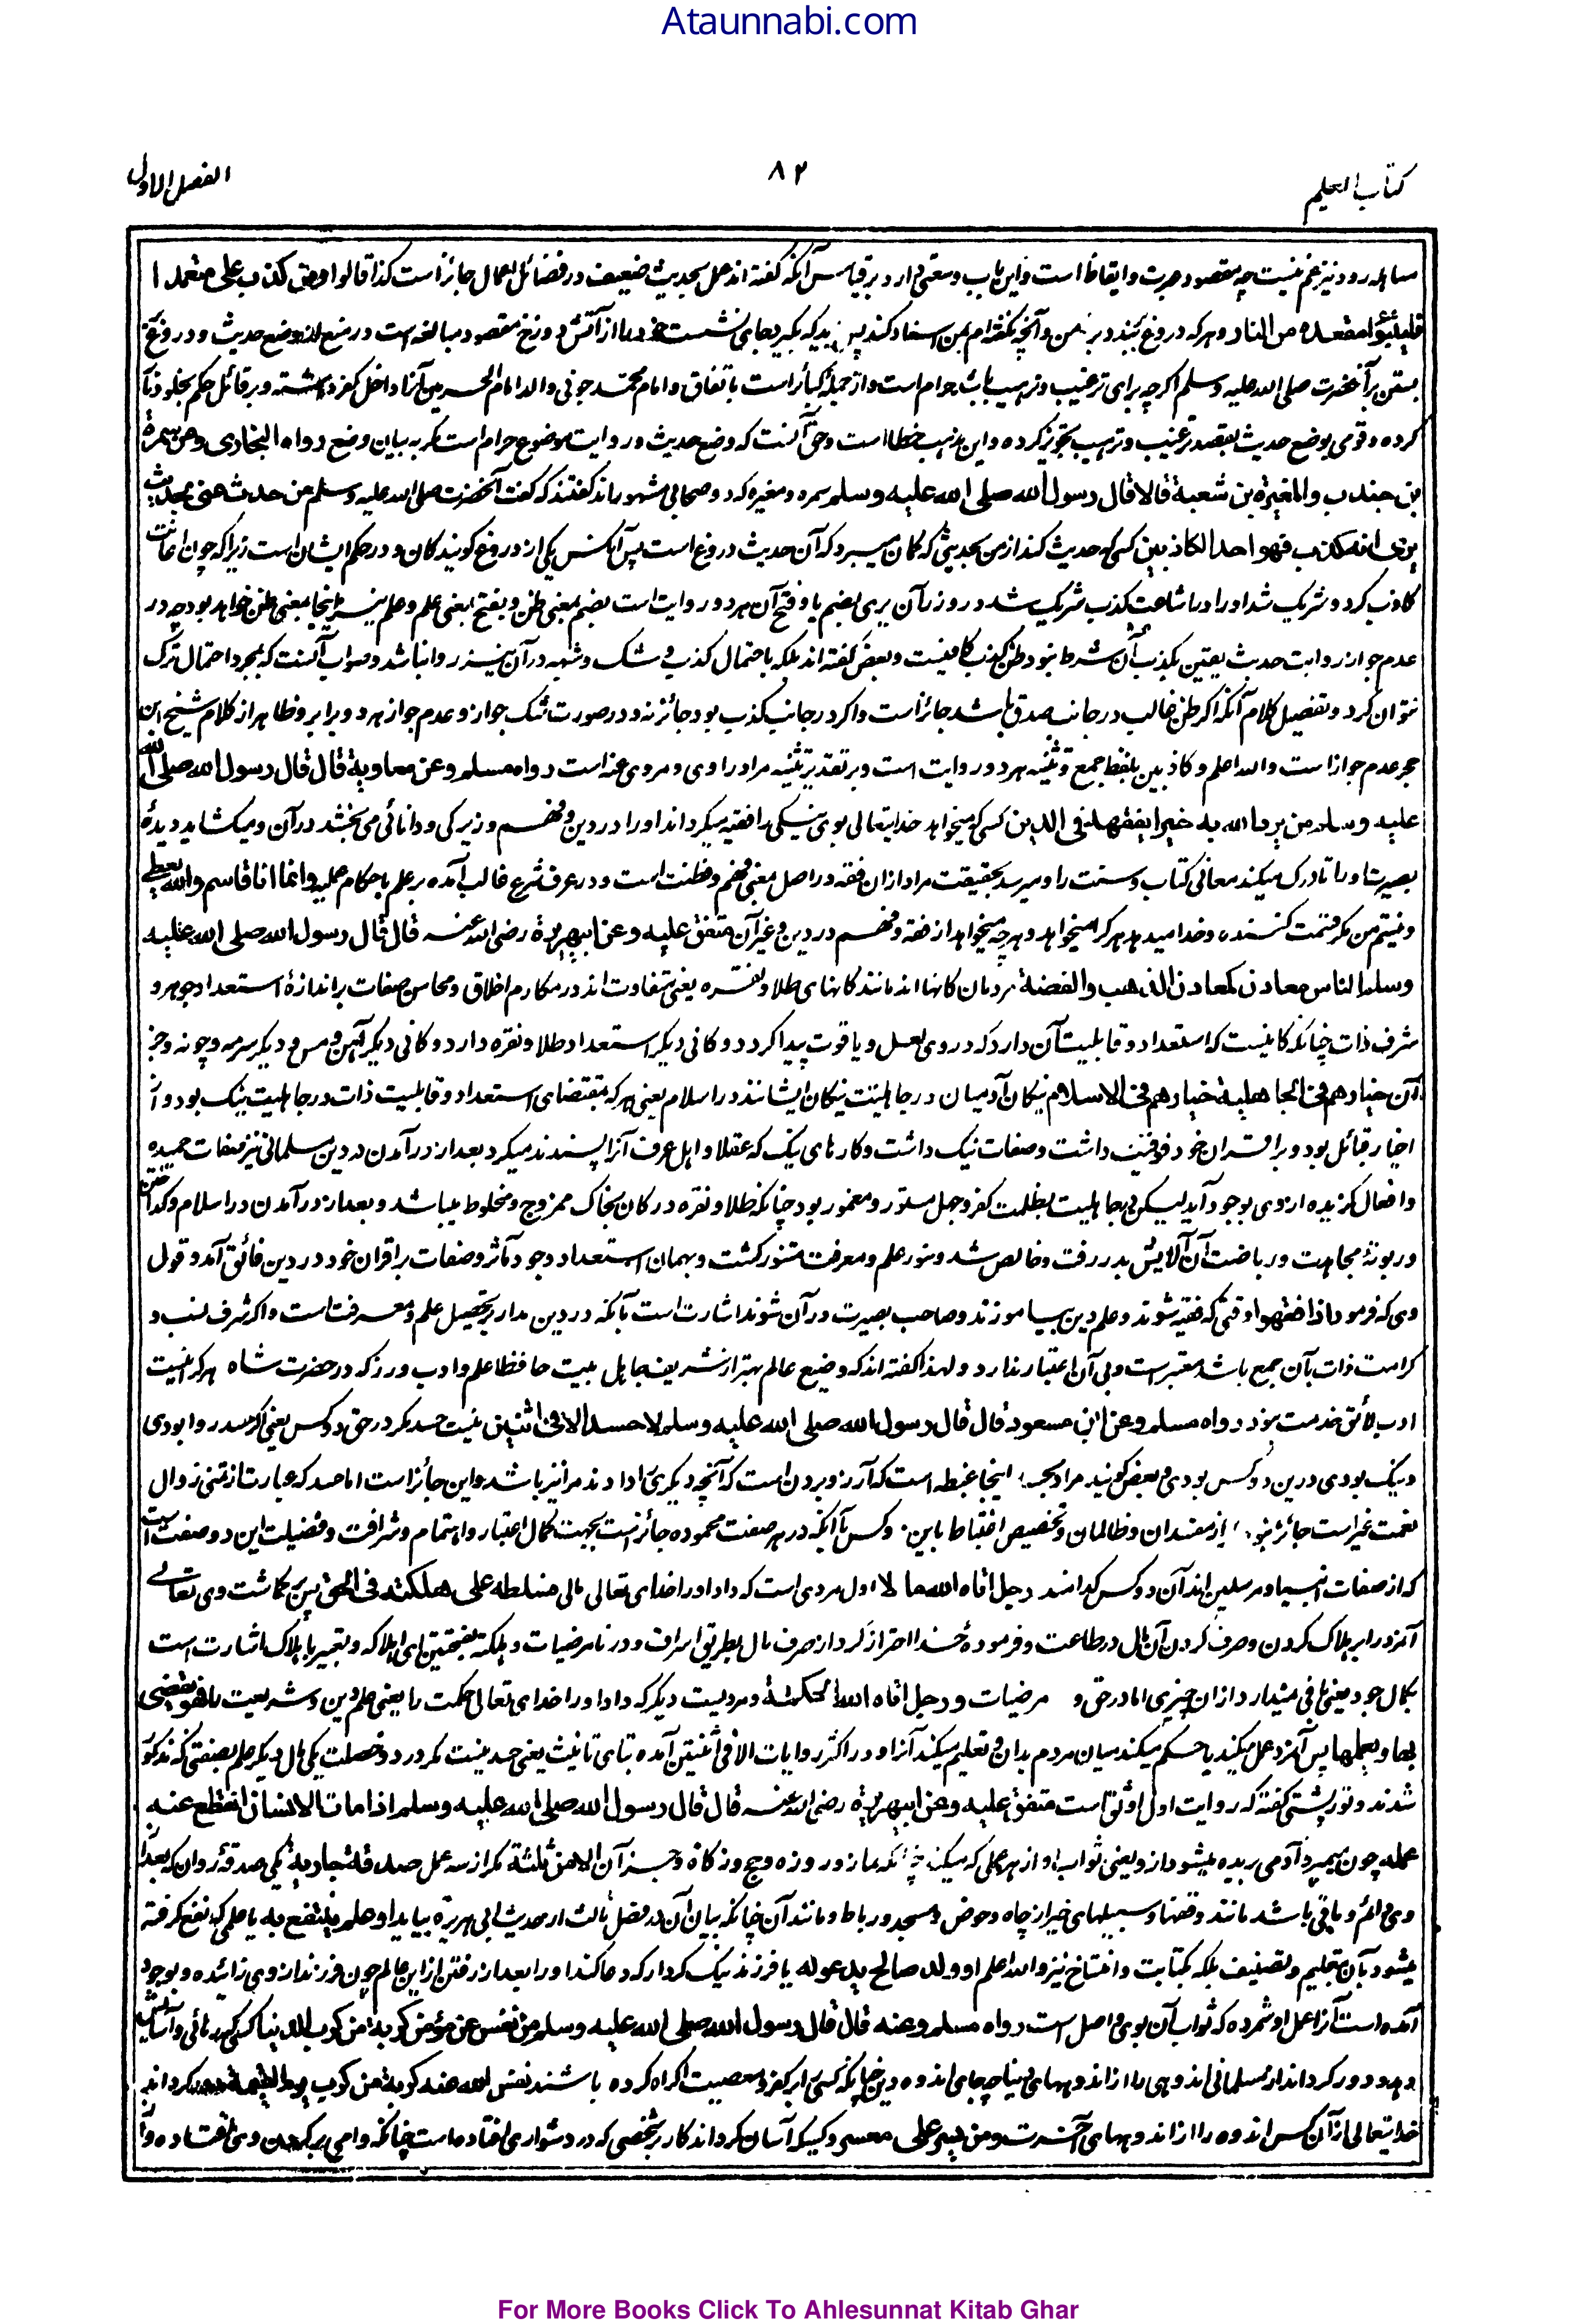 Ataunnabi.com
کتاب العلم
۸۲
الفصل الاول
مساہلہ رود نیز غم نیست چه مقصود عبرت و ایقاظ است و این باب وسعتی دارد بر قیاس آنکه گفته اند عمل بحدیث ضعیف در فضائل اعمال جائز است کذا قالوا ومن کذب علی متعمدا
فلیتبوأ مقعده من النار و هر که دروغ بندد بر من و آنچه نگفته ام بمن اسناد کند پس باید که بگیرد جای نشست خود را از آتش دوزخ مقصود مبالغه است در منع از وضع حدیث و دروغ
بستن بر آنحضرت صلی الله علیه وسلم اگرچه برای ترغیب و ترهیب باشد حرام است و از جمله کبائر است باتفاق و امام محمد جوینی والد امام الحرمین آنرا داخل کفر داشته و بر قائل حکم بخلود نار
کرده و قومی بوضع حدیث بقصد ترغیب و ترهیب تجویز کرده و این مذهب خطا است و حق آنست که وضع حدیث و روایت موضوع حرام است مگر به بیان وضع رواه البخاری وعن سمرة
بن جندب والمغیرة بن شعبة قالا قال رسول الله صلی الله علیه وسلم سمره و مغیره که دو صحابی مشهوراند گفتند که گفت آنحضرت صلی الله علیه وسلم من حدث عنی بحدیث
یری انه کذب فهو احد الکاذبین کسی که حدیث کند از من بحدیثی که گمان میبرد که آن حدیث دروغ است پس آنکس یکی از دروغ گویندگان و در حکم ایشان است زیرا که چون اعانت
کاذب کرد و شریک شد او را در اشاعت کذب شریک شد در وزر آن یری بضم یا و فتح آن هر دو روایت است بضم بمعنی ظن و بفتح بمعنی علم و علم نیز اینجا بمعنی ظن خواهد بود چه در
عدم جواز روایت حدیث یقین بکذب آن شرط نبود و ظن کذب کافیست و بعض گفته اند بلکه باحتمال کذب و شک و شبهه در آن نیز روا نباشد و صواب آنست که بمجرد احتمال ترک
نتوان کرد و تفصیل کلام آنکه اگر ظن غالب در جانب صدق باشد جائز است و اگر در جانب کذب بود جائز نه و در صورت شک جواز و عدم جواز هر دو برابر و ظاهر از کلام شیخ ابن
حجر عدم جواز است والله اعلم و کاذبین بلفظ جمع و تثنیه هر دو روایت است و بر تقدیر تثنیه مراد راوی و مروی عنه است رواه مسلم وعن معاویة قال قال رسول الله صلی الله
علیه وسلم من یرد الله به خیرا یفقهه فی الدین کسی که میخواهد خدایتعالی بوی نیکی را فقیه میگرداند او را در دین و فهم و زیرکی و دانائی می بخشد در آن و میکشاید دیدهٔ
بصیرت او را تا درک میکند معانی کتاب و سنت را و میرسد بحقیقت مراد ازان فقه در اصل معنی فهم و فطنت است و در عرف شرع غالب آمده بر علم باحکام عملیه وانما انا قاسم والله یعطی
و نیستم من مگر قسمت کننده و خدا میدهد هر کرا میخواهد و هرچه میخواهد از فقه و فهم در دین و غیر آن متفق علیه وعن ابی هریرة رضی الله عنه قال قال رسول الله صلی الله علیه
وسلم الناس معادن کمعادن الذهب والفضة مردمان کانها اند مانند کانهای طلا و نقره یعنی متفاوت اند در مکارم اخلاق و محاسن صفات بر اندازهٔ استعداد جوهر و
شرف ذات چنانکه کانیست که استعداد و قابلیت آن دارد که در وی لعل و یاقوت پیدا گردد و کانی دیگر استعداد طلا و نقره دارد و کانی دیگر آهن و مس و دیگر سرمه و چونه و جز
آن خیارهم فی الجاهلیة خیارهم فی الاسلام نیکان آدمیان در جاهلیت نیکان ایشانند در اسلام یعنی هر که بمقتضای استعداد و قابلیت ذات در جاهلیت نیک بود و از
اخیار قبائل بود و بر اقران خود فوقیت داشت و صفات نیک داشت و کارهای نیک که عقلا و اهل عرف آنرا پسندند میکرد بعد از درآمدن در دین مسلمانی نیز صفات حمیده
و افعال گزیده از وی بوجود آید لیکن در جاهلیت بظلمت کفر و جهل مستور و مغمور بود چنانکه طلا و نقره در کان بخاک ممزوج و مخلوط میباشد و بعد از درآمدن در اسلام و گداختن
در بوتهٔ مجاهدت و ریاضت آن آلایش بدر رفت و خالص شد و بنور علم و معرفت متنور گشت و بهمان استعداد وجود مآثر و صفات بر اقران خود در دین فائق آمد و قول
وی که فرمود اذا فقهوا وقتی که فقیه شوند و علم دین بیاموزند و صاحب بصیرت در آن شوند اشارت است بآنکه در دین مدار بر تحصیل علم و معرفت است و اگر شرف نسب و
کرامت ذات بآن جمع باشد معتبر است و بی آن اعتبار ندارد و لهذا گفته اند که وضیع عالم بهتر از شریف جاهل بیت حافظا علم و ادب ورز که در حضرت شاه هر کرا نیست
ادب لائق خدمت نبود رواه مسلم وعن ابن مسعود قال قال رسول الله صلی الله علیه وسلم لا حسد الا فی اثنین نیست حسد مگر در حق دو کس یعنی اگر حسد روا بودی
و نیک بودی درین دو کس بودی و بعض گویند مراد بحسد اینجا غبطه است که آرزو بردن است که آنچه دیگری را دادند مرا نیز باشد و این جائز است اما حسد که عبارت از تمنی زوال
نعمت غیر است جائز نبود از مفسدان و ظالمان و تخصیص اغتباط باین دو کس با آنکه در هر صفت محموده جائز است بجهت کمال اعتبار و اهتمام و شرافت و فضیلت این دو صفت است
که از صفات انبیا و مرسلین اند آن دو کس کدامند رجل اتاه الله مالا اول مردی است که داد او را خدای تعالی مالی فسلطه علی هلکته فی الحق پس گماشت وی تعالی
آنمرد را بر هلاک کردن و صرف کردن آن مال در طاعت و فرمودهٔ خدا احتراز کرد از صرف مال بطریق اسراف و در نامرضیات و هلکته بفتحتین ای اهلاکه و تعبیر باهلاک اشارت است
بکمال جود یعنی باقی میندارد ازان چیزی اما در حق و مرضیات ورجل اتاه الله الحکمة و مردیست دیگر که داد او را خدای تعالی حکمت را یعنی علم دین و شریعت را فهو یقضی
بها ویعلمها پس آنمرد عمل میکند یا حکم میکند میان مردم بدان و تعلیم میکند آنرا و در اکثر روایات الا فی اثنتین آمده بتای تانیث یعنی حسد نیست مگر در دو خصلت یکی مال دیگر علم بصفتی که مذکور
شدند و تورپشتی گفته که روایت اول اوثق است متفق علیه وعن ابی هریرة رضی الله عنه قال قال رسول الله صلی الله علیه وسلم اذا مات الانسان انقطع عنه
عمله چون بمیرد آدمی بریده میشود از وی یعنی ثواب او از هر عملی که میکند چنانکه نماز و روزه و حج و زکاة و جز آن الا من ثلثة مگر از سه عمل صدقة جاریة یکی صدقهٔ روان که بعد از
وی دائم و باقی باشد مانند وقفها و سبیلهای خیر از چاه و حوض و مسجد و رباط و مانند آن چنانکه بیان آن در فصل ثالث از حدیث ابی هریره بیاید او علم ینتفع به یا علمی که نفع گرفته
میشود بآن بتعلیم و تصنیف بلکه بکتابت و انتساخ نیز والله اعلم او ولد صالح یدعو له یا فرزند نیک کردار که دعا کند او را بعد از رفتن ازین عالم چون فرزند از وی زائیده و بوجود
آمده است آنرا عمل او شمرده که ثواب آن بوی واصل است رواه مسلم وعنه قال قال رسول الله صلی الله علیه وسلم من نفس عن مؤمن کربة من کرب الدنیا کسی که رهائی و آسائش
دهد و دور گرداند از مسلمانی اندوهی را از اندوههای دنیا چه جای اندوه دین چنانکه کسی را بر کفر و معصیت اکراه کرده باشند نفس الله عنه کربة من کرب یوم القیمة دور گرداند
خدایتعالی از آن کس اندوه را از اندوههای آخرت ومن یسر علی معسر و کسیکه آسان گرداند کار بر شخصی که در دشواری افتاده است چنانکه وامی بر گردن وی افتاده و آن
For More Books Click To Ahlesunnat Kitab Ghar